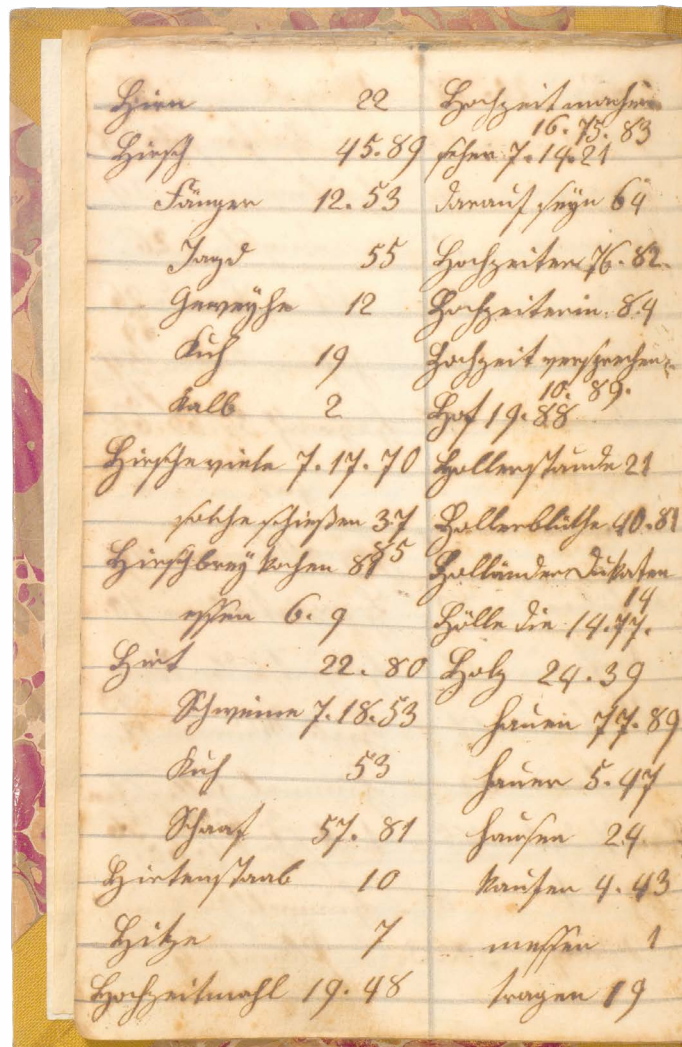 Hirn 22
Hirsch 45. 89
Fänger 12. 53
Jagd 55
Geweyhe 12
Kuh 19
Kalb 2
Hirsche viele 7. 17. 70
solche schießen 37
Hirschbrey kochen 81 85
essen 6. 9
Hirt 22. 80
Schweine 7. 18. 53
Kuh 53
Schaaf 57. 81
Hirtenstaab 10
Hitze 7
Hochzeitmahl 19. 48
Hochzeit machen
16. 75. 83
sehen 7. 14. 21
darauf seyn 64
Hochzeiter 76. 82.
Hochzeiterin. 84
Hochzeit versprechen
10. 89.
Hof 19. 88
Hollerstaude 21
Hollerblüthe 40. 81
Holländer Dukaten
14
Hölle die 14. 77.
Holz 24. 39
hauen 77. 89
hauer 5. 47
haufen 24
kaufen 4. 43
messen 1
tragen 19